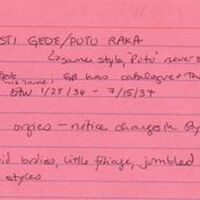 STI GEDE/PUTU RAKA
same style, "Putu" never s
GB has catalogued th
BTW 1/25/36 - 7/15/37
orgies - notice change in sty
id bodies, little foliage, jumbled
styles